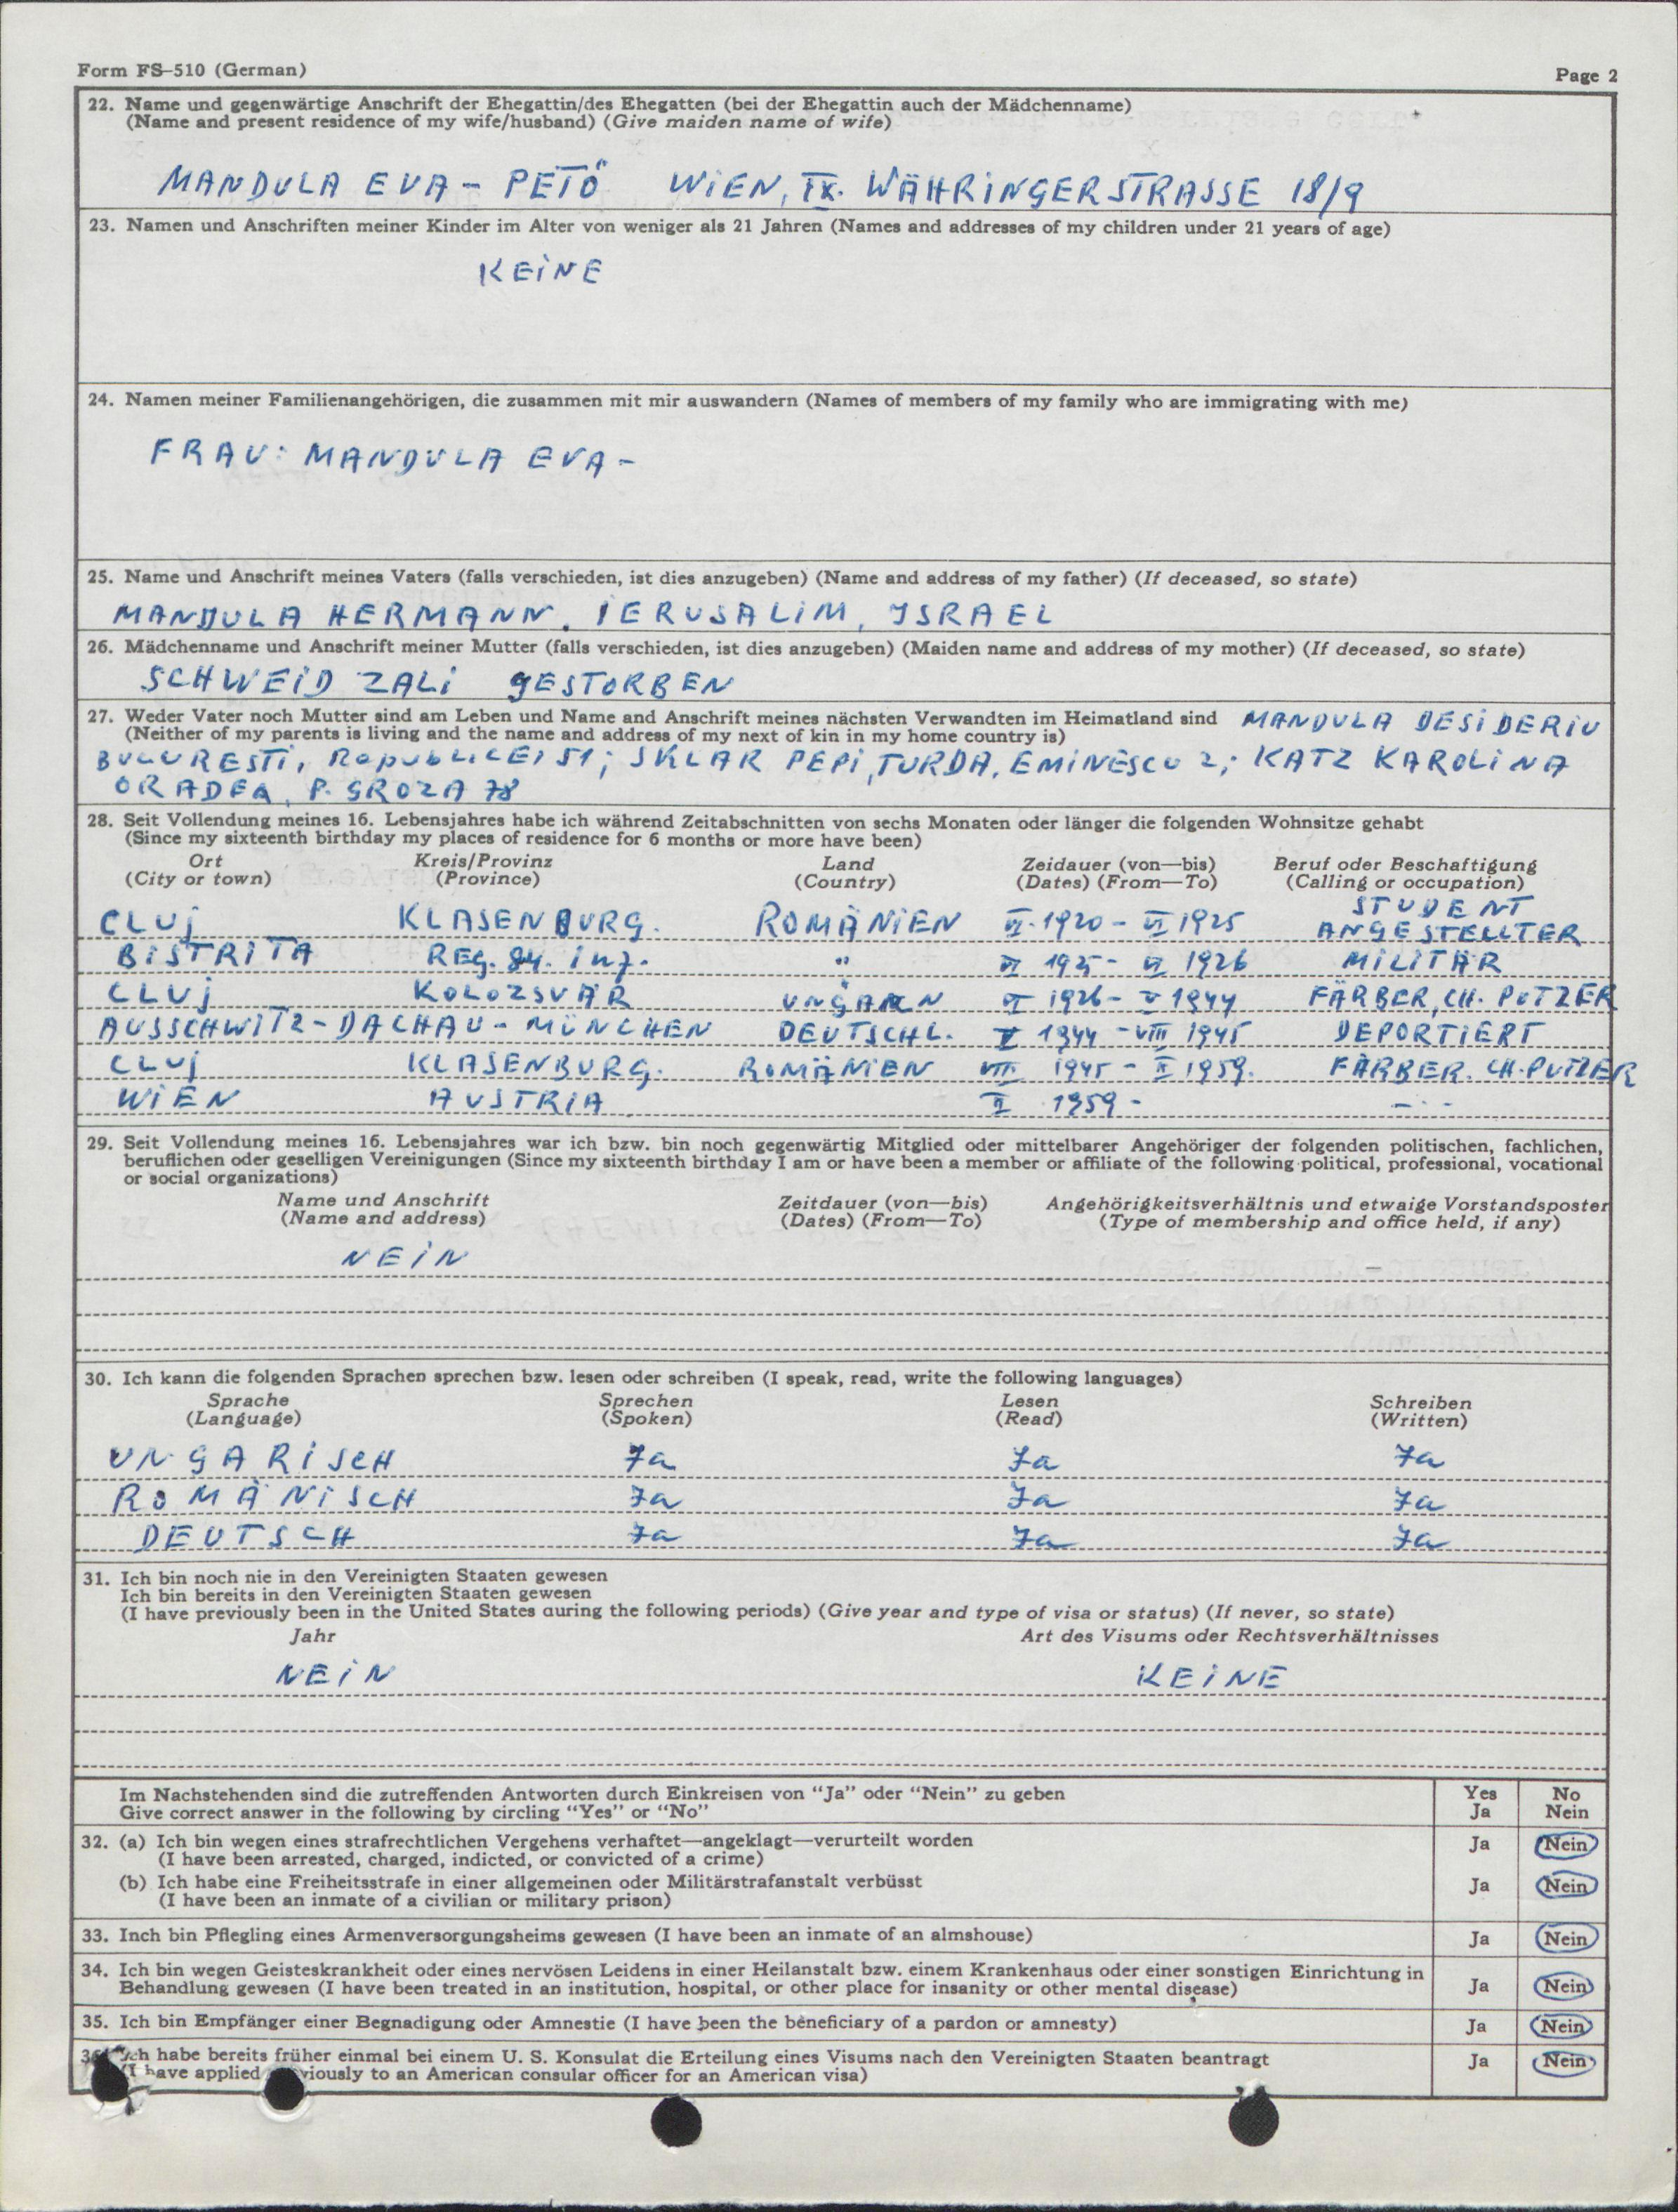 Form FS-510 (German)
Page 2
22. Name und gegenwärtige Anschrift der Ehegattin/des Ehegatten (bei der Ehegattin auch der Mädchenname)
(Name and present residence of my wife/husband) (Give maiden name of wife)
MANDULA EVA - PETŐ WIEN, IX. WÄHRINGERSTRASSE 18/9
23. Namen und Anschriften meiner Kinder im Alter von weniger als 21 Jahren (Names and addresses of my children under 21 years of age)
KEINE
24. Namen meiner Familienangehörigen, die zusammen mit mir auswandern (Names of members of my family who are immigrating with me)
FRAU: MANDULA EVA -
25. Name und Anschrift meines Vaters (falls verschieden, ist dies anzugeben) (Name and address of my father) (If deceased, so state)
MANDULA HERMANN, IERUSALIM, ISRAEL
26. Mädchenname und Anschrift meiner Mutter (falls verschieden, ist dies anzugeben) (Maiden name and address of my mother) (If deceased, so state)
SCHWEID ZALI GESTORBEN
27. Weder Vater noch Mutter sind am Leben und Name and Anschrift meines nächsten Verwandten im Heimatland sind MANDULA DESIDERIU
(Neither of my parents is living and the name and address of my next of kin in my home country is)
BUCURESTI, REPUBLICEI 51; SKLAR PEPI, TURDA, EMINESCU 2; KATZ KAROLINA
ORADEA, P. GROZA 78
28. Seit Vollendung meines 16. Lebensjahres habe ich während Zeitabschnitten von sechs Monaten oder länger die folgenden Wohnsitze gehabt
(Since my sixteenth birthday my places of residence for 6 months or more have been)
Ort Kreis/Provinz Land Zeidauer (von—bis) Beruf oder Beschaftigung
(City or town) (Province) (Country) (Dates) (From—To) (Calling or occupation)
STUDENT
CLUJ KLASENBURG. ROMÄNIEN VI. 1920 - VI 1925 ANGESTELLTER
BISTRITA REG. 84. inf. " VI 1925 - VI 1926 MILITÄR
CLUJ KOLOZSVÁR UNGARN VI 1926 - V 1944 FÄRBER, CH. PUTZER
AUSSCHWITZ - DACHAU - MÜNCHEN DEUTSCHL. V 1944 - VIII 1945 DEPORTIERT
CLUJ KLASENBURG. ROMÄNIEN VIII 1945 - II 1959. FÄRBER. CH. PUTZER
WIEN AUSTRIA II 1959 - - - -
29. Seit Vollendung meines 16. Lebensjahres war ich bzw. bin noch gegenwärtig Mitglied oder mittelbarer Angehöriger der folgenden politischen, fachlichen,
beruflichen oder geselligen Vereinigungen (Since my sixteenth birthday I am or have been a member or affiliate of the following political, professional, vocational
or social organizations)
Name und Anschrift Zeitdauer (von—bis) Angehörigkeitsverhältnis und etwaige Vorstandsposter
(Name and address) (Dates) (From—To) (Type of membership and office held, if any)
NEIN
30. Ich kann die folgenden Sprachen sprechen bzw. lesen oder schreiben (I speak, read, write the following languages)
Sprache Sprechen Lesen Schreiben
(Language) (Spoken) (Read) (Written)
UNGARISCH Ja Ja Ja
ROMÄNISCH Ja Ja Ja
DEUTSCH Ja Ja Ja
31. Ich bin noch nie in den Vereinigten Staaten gewesen
Ich bin bereits in den Vereinigten Staaten gewesen
(I have previously been in the United States auring the following periods) (Give year and type of visa or status) (If never, so state)
Jahr Art des Visums oder Rechtsverhältnisses
NEIN KEINE
Im Nachstehenden sind die zutreffenden Antworten durch Einkreisen von "Ja" oder "Nein" zu geben Yes No
Give correct answer in the following by circling "Yes" or "No" Ja Nein
32. (a) Ich bin wegen eines strafrechtlichen Vergehens verhaftet—angeklagt—verurteilt worden Ja Nein
(I have been arrested, charged, indicted, or convicted of a crime)
(b) Ich habe eine Freiheitsstrafe in einer allgemeinen oder Militärstrafanstalt verbüsst Ja Nein
(I have been an inmate of a civilian or military prison)
33. Inch bin Pflegling eines Armenversorgungsheims gewesen (I have been an inmate of an almshouse) Ja Nein
34. Ich bin wegen Geisteskrankheit oder eines nervösen Leidens in einer Heilanstalt bzw. einem Krankenhaus oder einer sonstigen Einrichtung in
Behandlung gewesen (I have been treated in an institution, hospital, or other place for insanity or other mental disease) Ja Nein
35. Ich bin Empfänger einer Begnadigung oder Amnestie (I have been the beneficiary of a pardon or amnesty) Ja Nein
habe bereits früher einmal bei einem U. S. Konsulat die Erteilung eines Visums nach den Vereinigten Staaten beantragt Ja Nein
have applied to an American consular officer for an American visa)